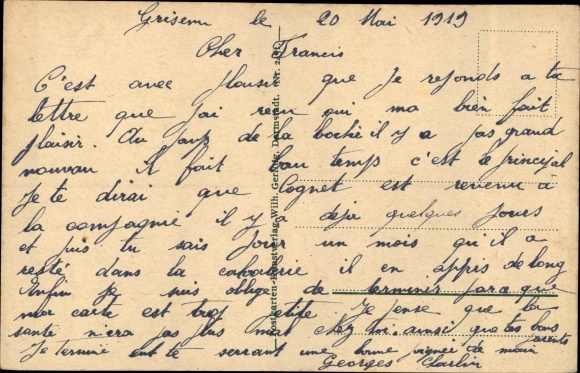 Grisenn le 20 Mai 1919
Cher Francis
C'est avec plaisir que Je reponds a ta
lettre que j'ai reçu qui ma bien fait
plaisir. Au pays de la bochie il y a pas grand
nouvau il fait beau temps c'est le principal
Je te dirai que Cognet est revenu à
la compagnie il y a deja quelques jours
et puis tu sais pour un mois qu'il a
resté dans la il en appris de long
Enfin je suis obligé de terminer parce que
ma carte est trop petite. Je pense que ta
santé n'era pas plus mal chez toi ainsi que tes bons
parents
Je termine en te serrant une bonne poignée de main
Georges Charlin
Postkarten-Kunstverlag Wilh. Gerling, Darmstadt. Nr.